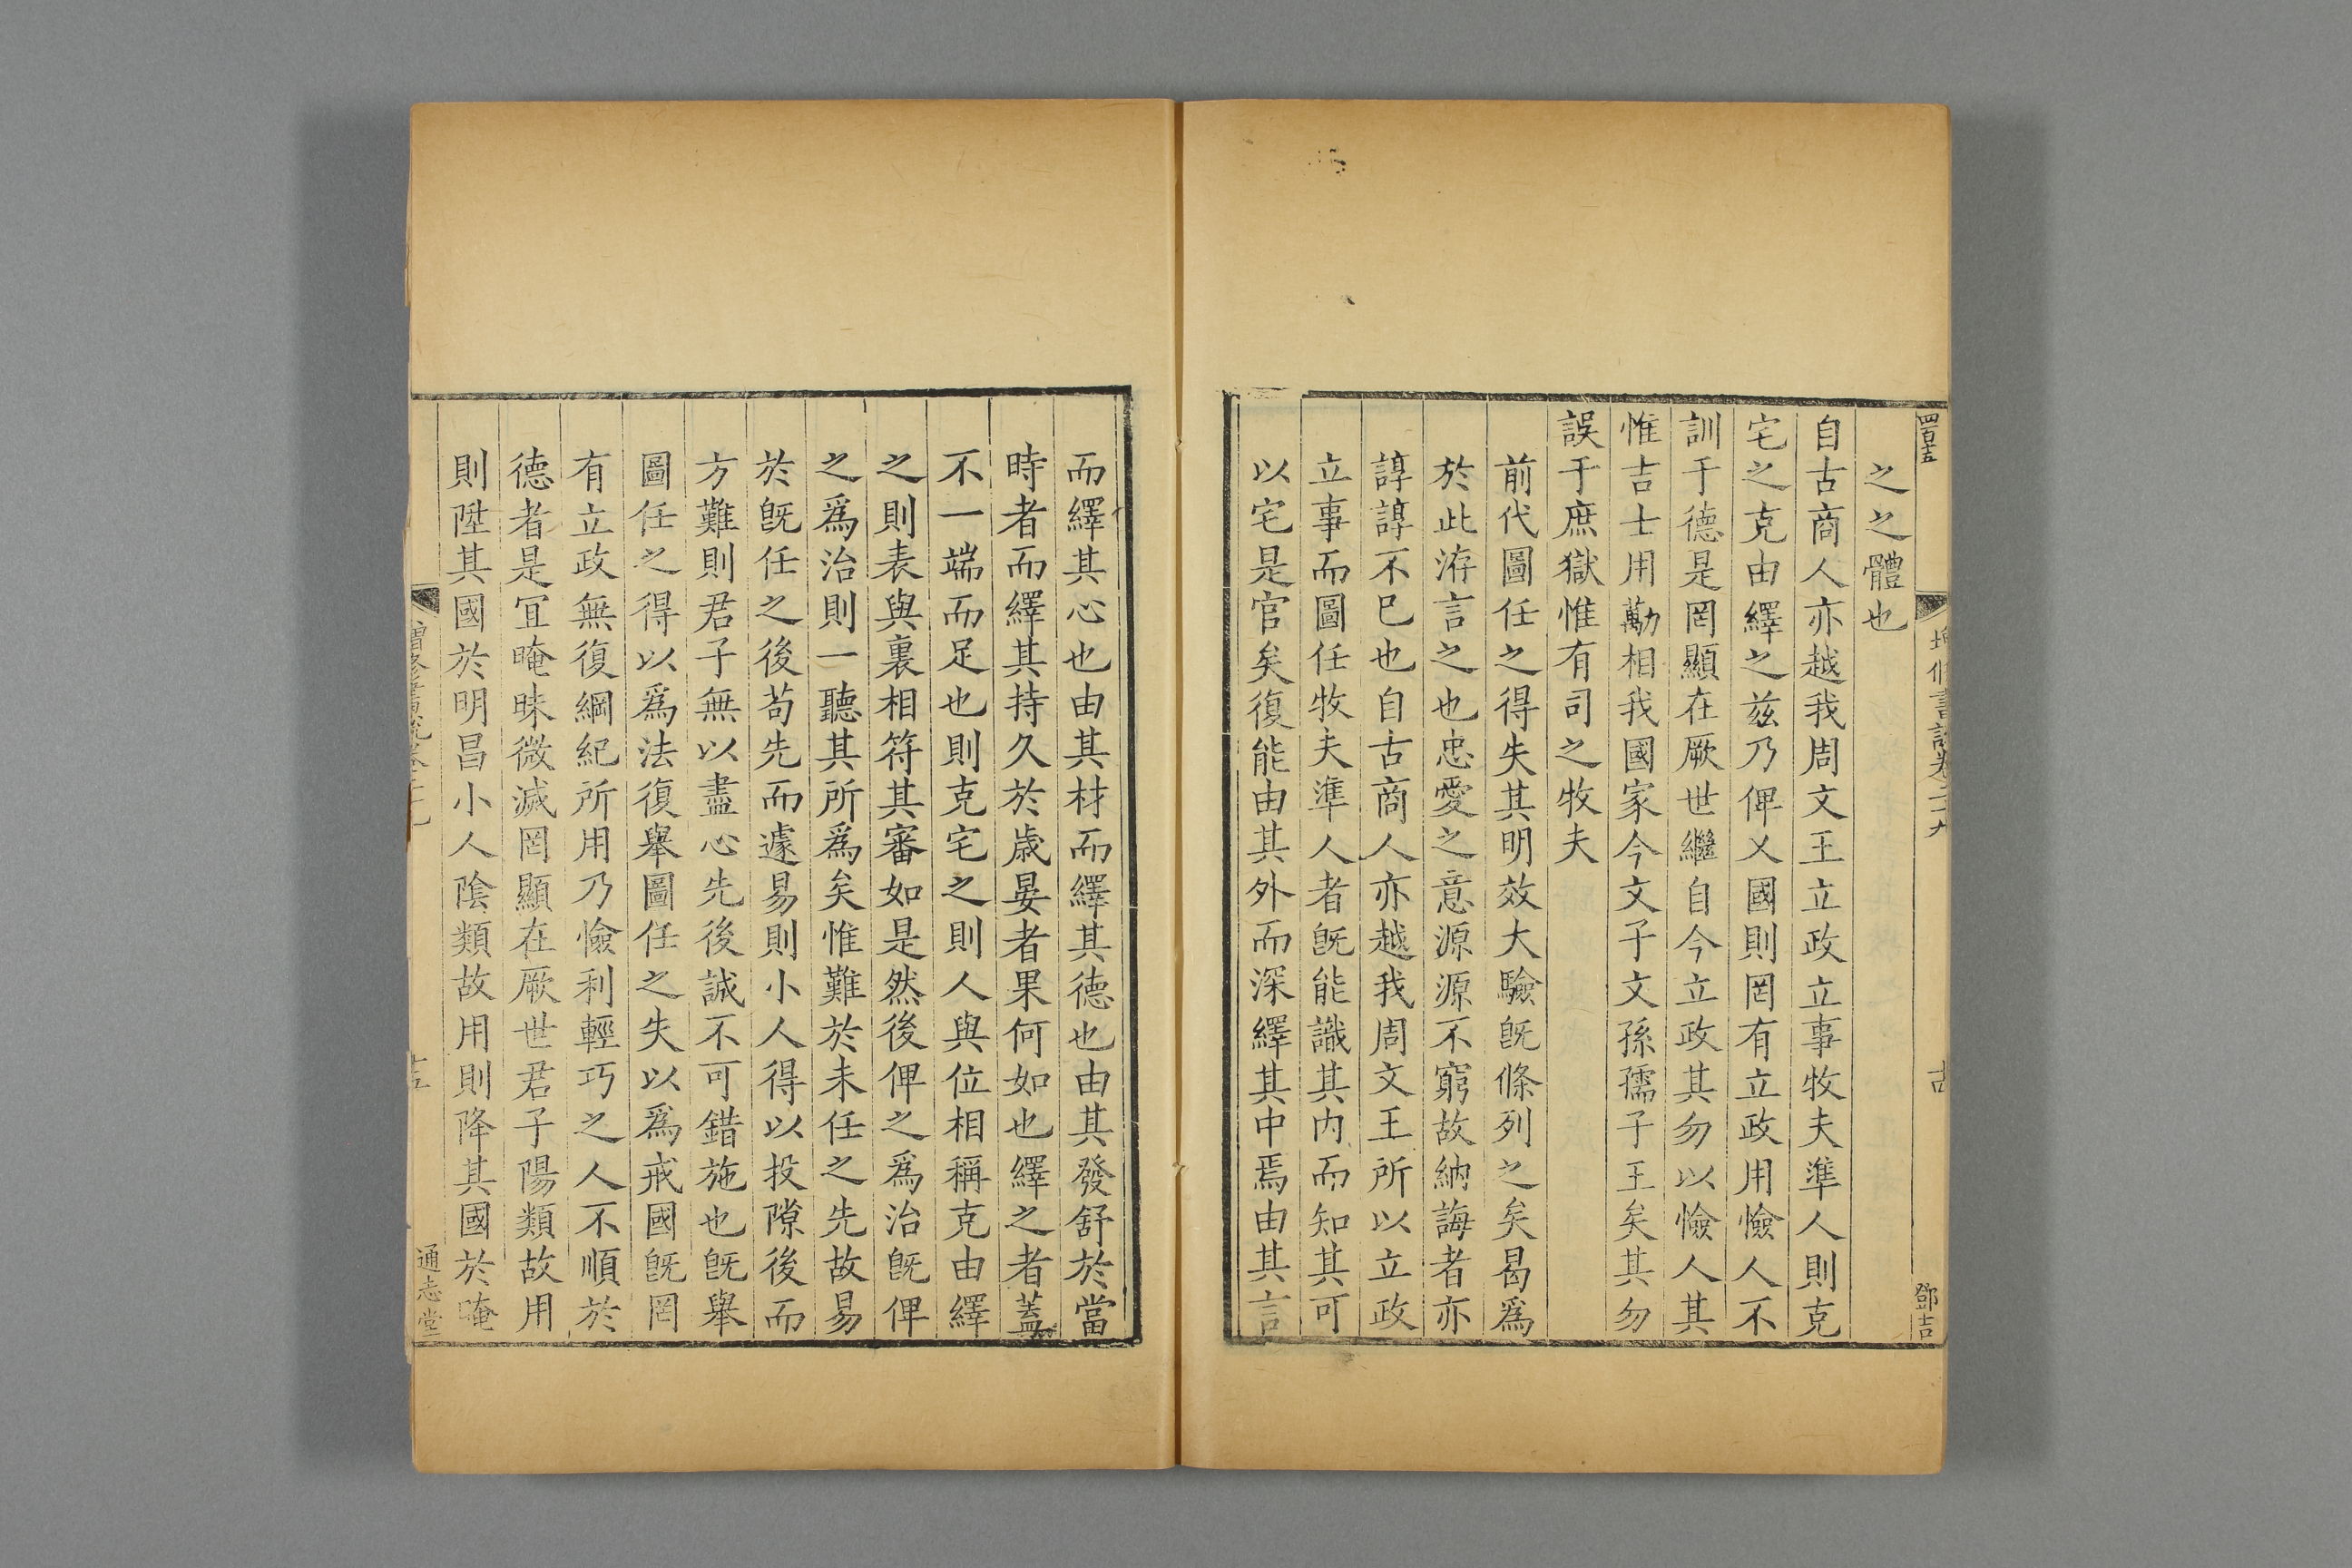 四百十五
增修書說卷二十九
十四
鄧吉
之之體也
自古商人亦越我周文王立政立事牧夫準人則克
宅之克由繹之兹乃俾乂國則罔有立政用憸人不
訓于德是罔顯在厥世繼自今立政其勿以憸人其
惟吉士用勱相我國家今文子文孫孺子王矣其勿
誤于庶獄惟有司之牧夫
前代圖任之得失其明效大驗旣條列之矣曷爲
於此洊言之也忠愛之意源源不窮故納誨者亦
諄諄不已也自古商人亦越我周文王所以立政
立事而圖任牧夫準人者旣能識其内而知其可
以宅是官矣復能由其外而深繹其中焉由其言
而繹其心也由其材而繹其德也由其發舒於當
時者而繹其持久於歲晏者果何如也繹之者蓋
不一端而足也則克宅之則人與位相稱克由繹
之則表與裏相符其審如是然後俾之爲治旣俾
之爲治則一聽其所爲矣惟難於未任之先故易
於旣任之後苟先而遽易則小人得以投隙後而
方難則君子無以盡心先後誠不可錯施也旣舉
圖任之得以爲法復舉圖任之失以爲戒國旣罔
有立政無復綱紀所用乃憸利輕巧之人不順於
德者是宜晻昧微滅罔顯在厥世君子陽類故用
則陞其國於明昌小人陰類故用則降其國於晻
增修書說卷二十九
十五
通志堂